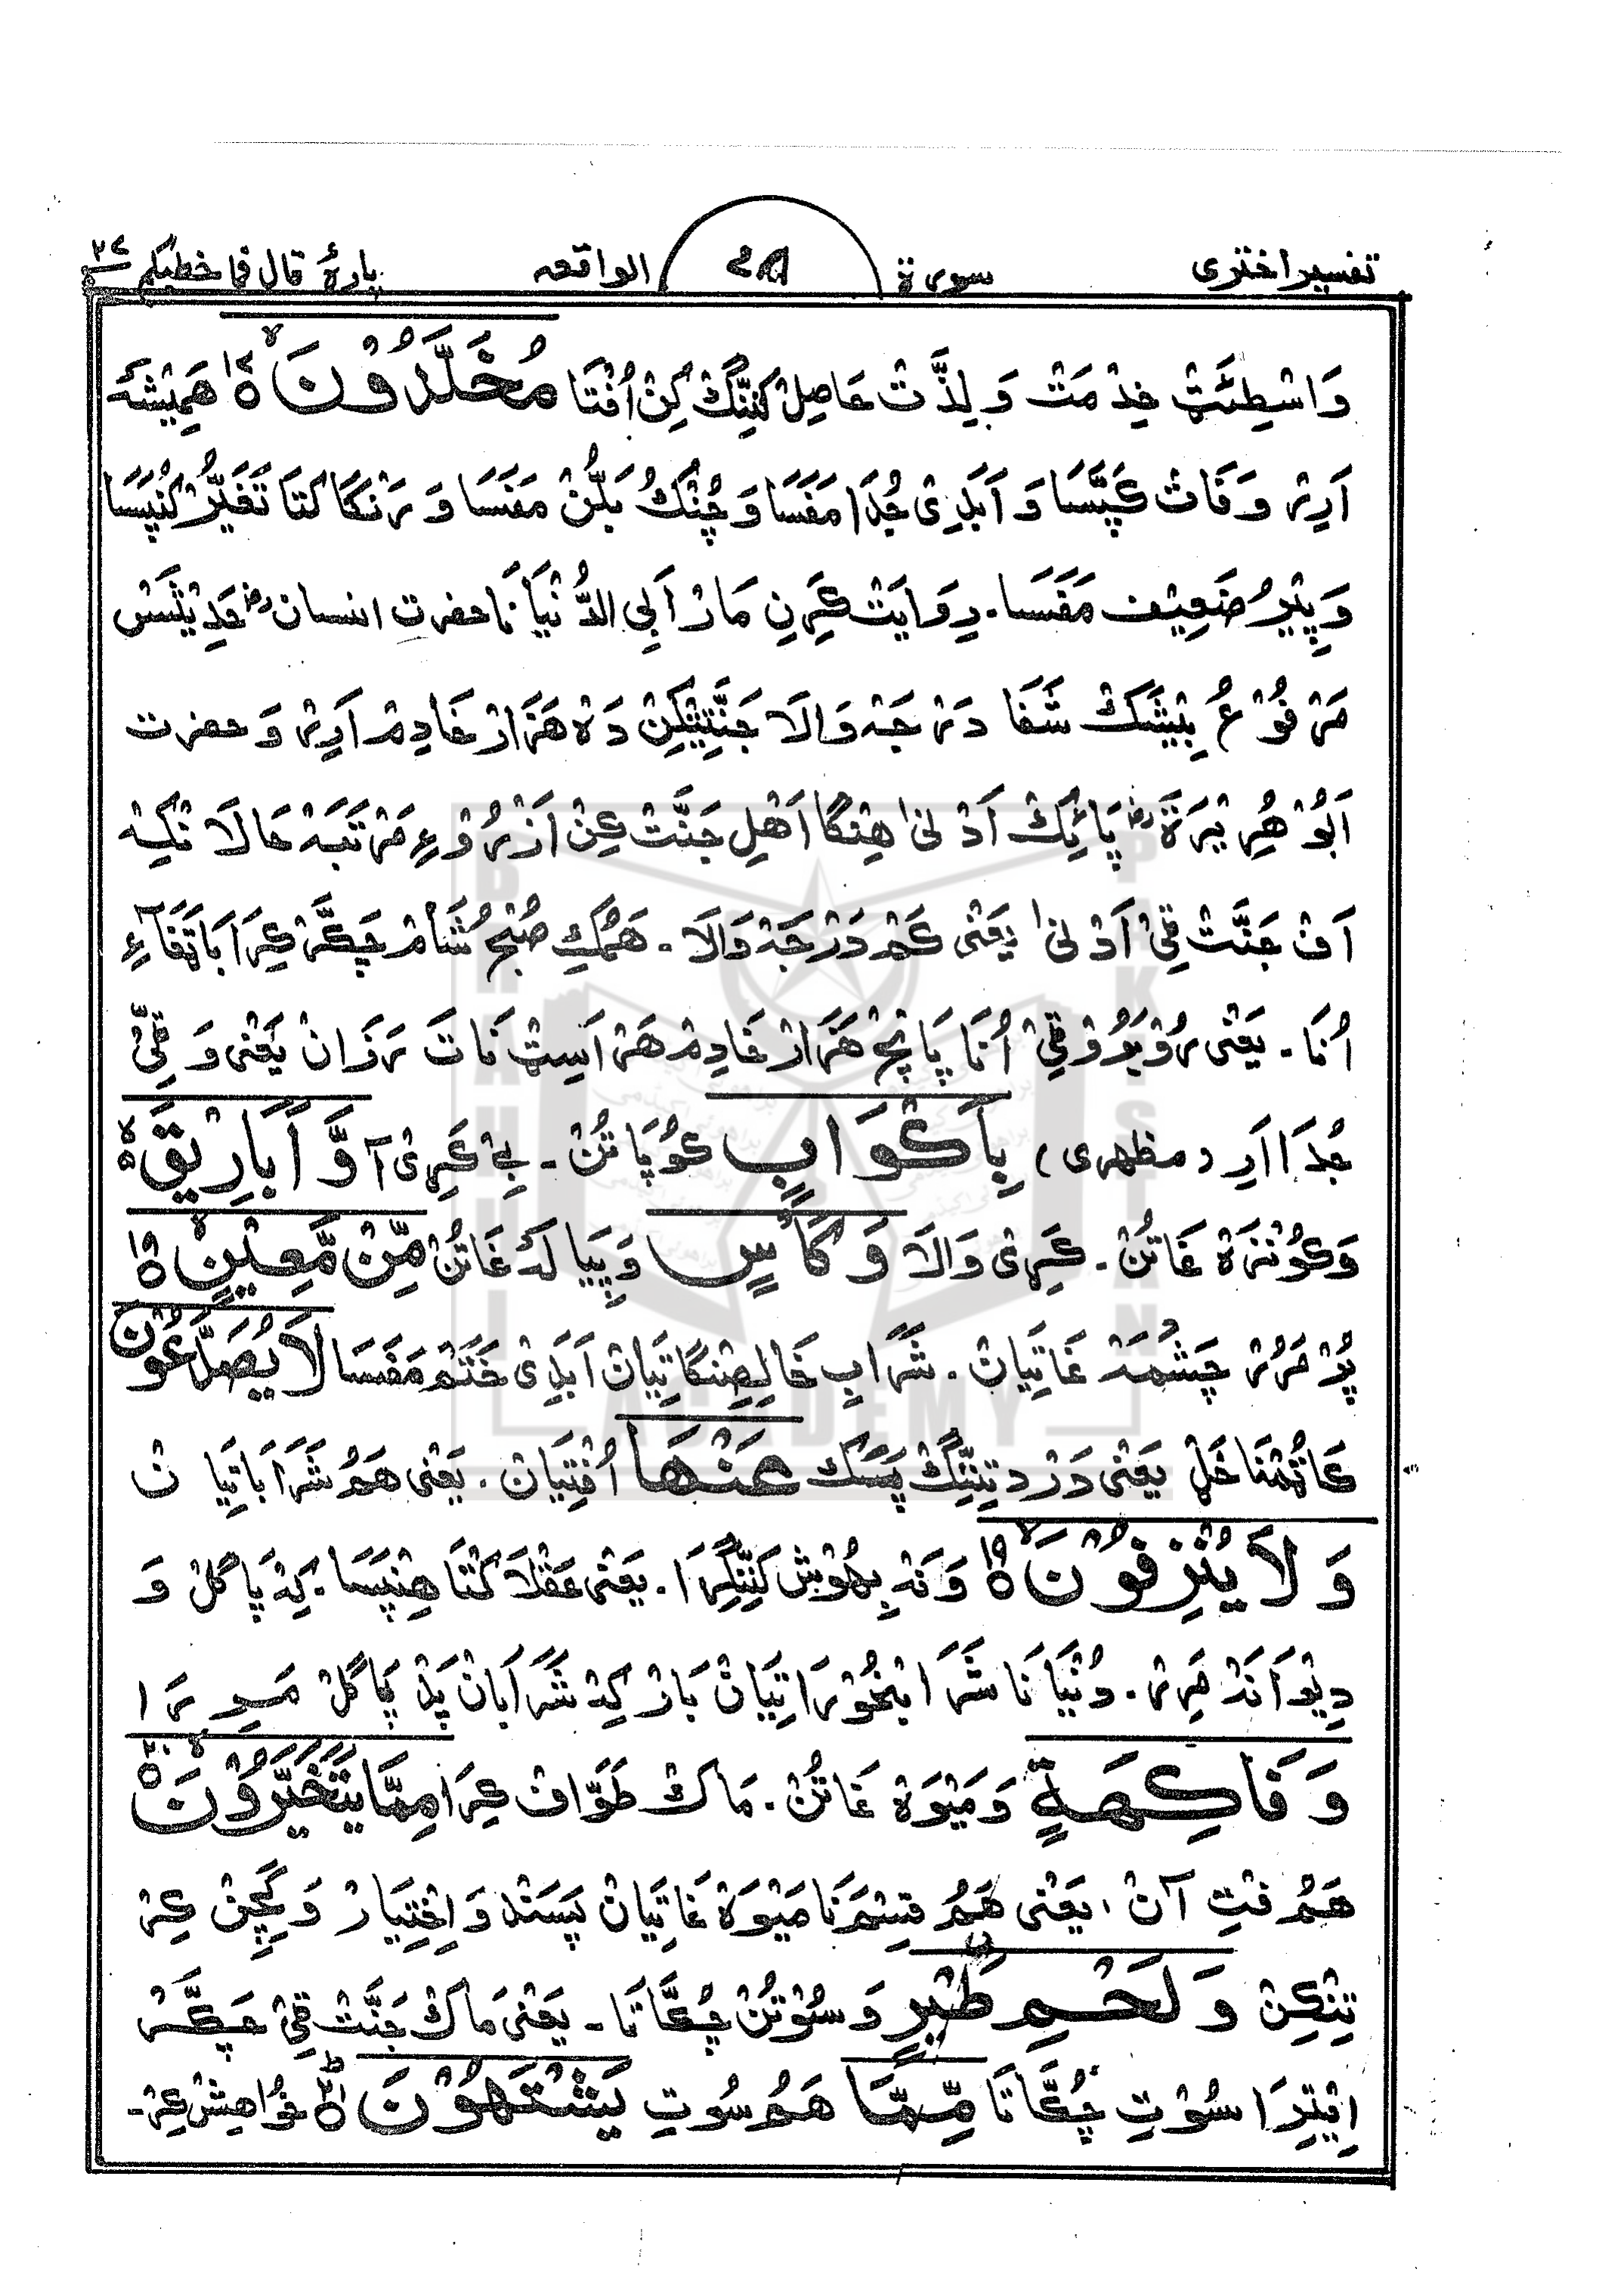 تفسیر اختری سورة الواقعہ پارۂ قال فما خطبکم ۲۷
وَاسْطِئَتْ خِدْمَتْ وَ لِذَّتْ حَاصِلْ کَنِنِّگْ کِنْ اُفْتَا مُخَلَّدُوْنَ ۱۷ هَمِیْشَہ
اَدِرْ وَفَاتْ کَپَّسَا وَ اَبَدِیْ جُدَا مَفَسَا وَ چُنْکُ بَلُّنْ مَفَسَا وَ رَنْگَا کتَا تَغَیُّرْ کَنْپَسَا
وَ پِیْرُ ضَعِیْف مَفَسَا۔ رِوَایَتْ کَرِنِ مَارْ اَبِی الدُّنْیَا نَا حضرت انسان رضہ حَدِیْثَسْ
مَرْفُوْعُ بِیْشَکْ شَفَا دَرْجَہ وَالَا جَنَّتِیْتِکِنْ دَہ هَزَارْ خَادِمْ اَدِرْ وَ حضرت
اَبُوْ هُرِیْرَةَ رضہ پَائِکْ اَدْنیٰ هِنْگَا اَهْلِ جَنَّتْ کِنْ اَزْرُوْءِ مَرْتَبَہْ حَالَا تْکِہْ
اَفْ جَنَّتْ قِیْ اَدْنیٰ یَعْنٰی کَمْ دَرْجَہْ وَالَا ۔ هَمُکِ صُبْحُ شَامْ چَکَّرْ کِرَا بَاتَغَاءِ
اُنَا۔ یَعْنٰی رُوْبَرُوْ قِیْ اُنَا پَانْچْ هَزَارْ خَادِمْ هَرْ اَسِٹْ نَا تَ رَوَانْ یَعْنٰی وَ قِیْ
جُدَا اَرِ (مظهری) بِاَكْوَابٍ کوُپَا تُنْ ۔ بِےْ کَرِیْ آ وَّاَبَارِیْقَ ۃ
وَ کُوْنْزَہْ غَاتُنْ ۔ کَرِیْ وَالَا وَكَاْسٍ وَ پِیَالَہ غَاتُنْ مِّنْ مَّعِیْنٍ ۱۸
پُرْ مَرُرْ چَشْمَہْ غَاتِیَانْ ۔ شَرَابِ خَالِصِنْگَا تِیَانْ اَبَدِیْ خَتَمْ مَفَسَا لَا یُصَدَّعُوْنَ
کَاٹُمْنَا خَلْ یَعْنٰی دَرْد تِنِنِّگْ پَسَک عَنْهَا اُفْتِیَانْ ۔ یَعْنٰی هَمُ شَرَابَاتِیَانْ
وَلَا یُنْزِفُوْنَ ۱۹ وَ نَہْ بِیهُوْشْ کَنِنِّگِرَا ۔ یَعْنٰی عَقْلَاکْتَا هِنْپَسَا۔ کِہْ پَاگَلْ وَ
دِیْوَانَہْ مَرِرْ ۔ دُنْیَا نَا شَرَابْخُوْرَاتِیَانْ بَارْ کِہْ شَرَابَانْ پَدْ پَاگَلْ مَرِرَا
وَ فَاكِهَةٍ وَ مَیْوَہْ غَاتُنْ ۔ مَاکْ طَوَّافْ کِرَا مِمَّا یَتَخَیَّرُوْنَ ۲۰
هَمُ فْتِ آنْ ، یَعْنٰی هَمُ قِسْمَ نَا مَیْوَہْ غَاتِیَانْ پَسَنْد وَ اِخْتِیَارْ وَ گَچِیْنْ کِرْ
تِنْکِنْ وَ لَحْمِ طَیْرٍ وَ سُوْتُنْ چُکَّاتَا ۔ یَعْنٰی مَاکْ جَنَّتْ قِیْ چَکَّرْ
اِیْتِرَا سُوْتِ چُکَّاتَا مِّمَّا هَمُ سُوتِ یَشْتَهُوْنَ ۲۱ خُوَاهِشْ کِرْ۔